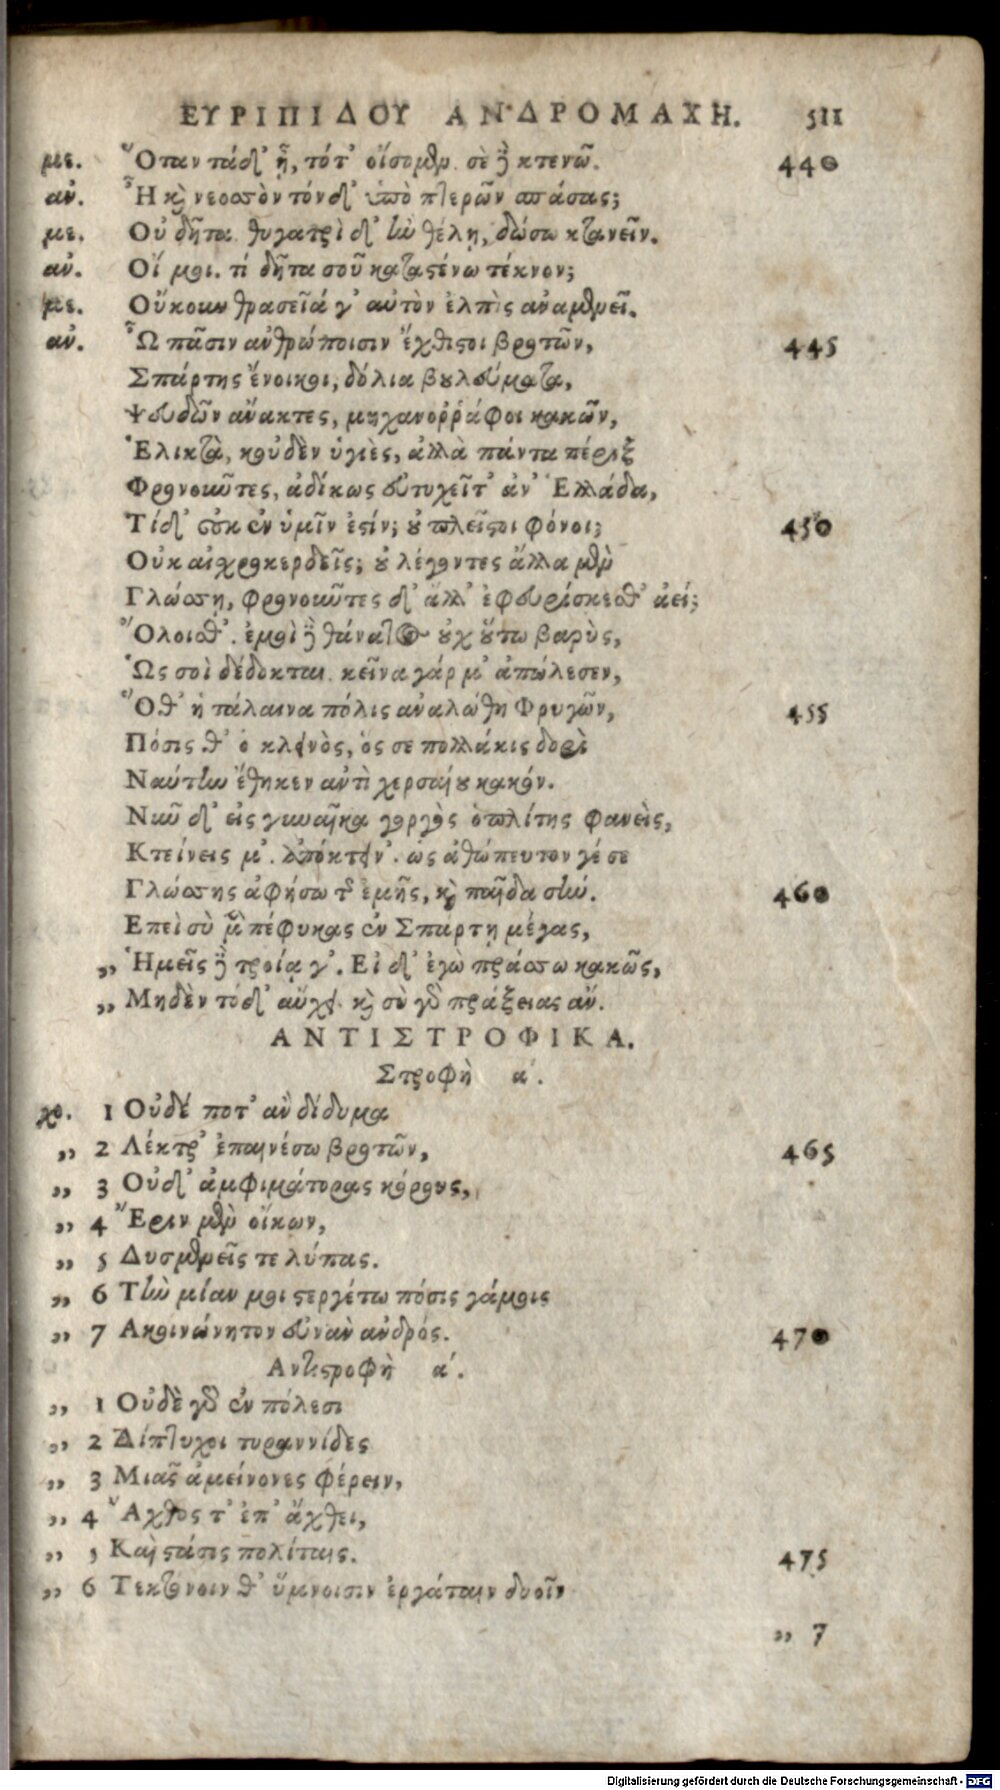 ΕΥΡΙΠΙΔΟΥ ΑΝΔΡΟΜΑΧΗ. 511
με. Ὅταν τάδ' ᾖ, τότ' οἴσομεν. σὲ δὲ κτενῶ. 440
αν. Ἦ καὶ νεοσσὸν τόνδ' ὑπὸ πτερῶν σπάσας;
με. Οὐ δῆτα. θυγατρὶ δ' ἢν θέλῃ, δώσω κτανεῖν.
αν. Οἴ μοι. τί δῆτα σοῦ καταστένω τέκνον;
με. Οὔκουν θρασεῖά γ' αὐτὸν ἐλπὶς ἀναμενεῖ.
αν. Ὦ πᾶσιν ἀνθρώποισιν ἔχθιστοι βροτῶν, 445
Σπάρτης ἔνοικοι, δόλια βουλεύματα,
Ψευδῶν ἄνακτες, μηχανοῤῥάφοι κακῶν,
Ἑλικτὰ, κοὐδὲν ὑγιὲς, ἀλλὰ πάντα πέριξ
Φρονοῦντες, ἀδίκως εὐτυχεῖτ' ἀν' Ἑλλάδα,
Τίδ' οὐκ ἐν ὑμῖν ἐστίν; οὐ πλεῖστοι φόνοι; 450
Οὐκ αἰσχροκερδεῖς; οὐ λέγοντες ἄλλα μὲν
Γλώσσῃ, φρονοῦντες δ' ἄλλ' ἐφευρίσκεσθ' ἀεί;
Ὄλοισθ'. ἐμοὶ δὲ θάνατος οὐχ οὕτω βαρὺς,
Ὡς σοὶ δέδοκται. κεῖνα γάρ μ' ἀπώλεσεν,
Ὅθ' ἡ τάλαινα πόλις ἀναλώθη Φρυγῶν, 455
Πόσις θ' ὁ κλεινὸς, ὅς σε πολλάκις δορὶ
Ναύτην ἔθηκεν ἀντὶ χερσαίου κακόν.
Νῦν δ' εἰς γυναῖκα γοργὸς ὁπλίτης φανεὶς,
Κτείνεις μ'. ἀπόκτειν'. ὡς ἀθώπευτον γέ σε
Γλώσσης ἀφήσω τῆς ἐμῆς, καὶ παῖδα σήν. 460
Επεὶ σὺ μὲν πέφυκας ἐν Σπάρτῃ μέγας,
„ Ἡμεῖς δὲ τροίᾳ γ'. Εἰ δ' ἐγὼ πράσσω κακῶς,
„ Μηδὲν τόδ' αὔχει. καὶ σὺ γὰρ πράξειας ἄν.
ΑΝΤΙΣΤΡΟΦΙΚΑ.
Στροφὴ α'.
χο. 1 Οὐδέ ποτ' ἂν δίδυμα
„ 2 Λέκτρ' ἐπαινέσω βροτῶν, 465
„ 3 Οὐδ' ἀμφιμάτορας κόρους,
„ 4 Ἔριν μὲν οἴκων,
„ 5 Δυσμενεῖς τε λύπας.
„ 6 Τὴν μίαν μοι στεργέτω πόσις γάμοις
„ 7 Ακοινώνητον εὐνὰν ἀνδρός. 470
Αντιστροφὴ α'.
„ 1 Οὐδὲ γὰρ ἐν πόλεσι
„ 2 Δίπτυχοι τυραννίδες
„ 3 Μιᾶς ἀμείνονες φέρειν,
„ 4 Ἄχθος τ' ἐπ' ἄχθει,
„ 5 Καὶ στάσις πολίταις. 475
„ 6 Τεκτόνοιν θ' ὕμνοισιν ἐργάταιν δυοῖν
„ 7
Digitalisierung gefördert durch die Deutsche Forschungsgemeinschaft - DFG